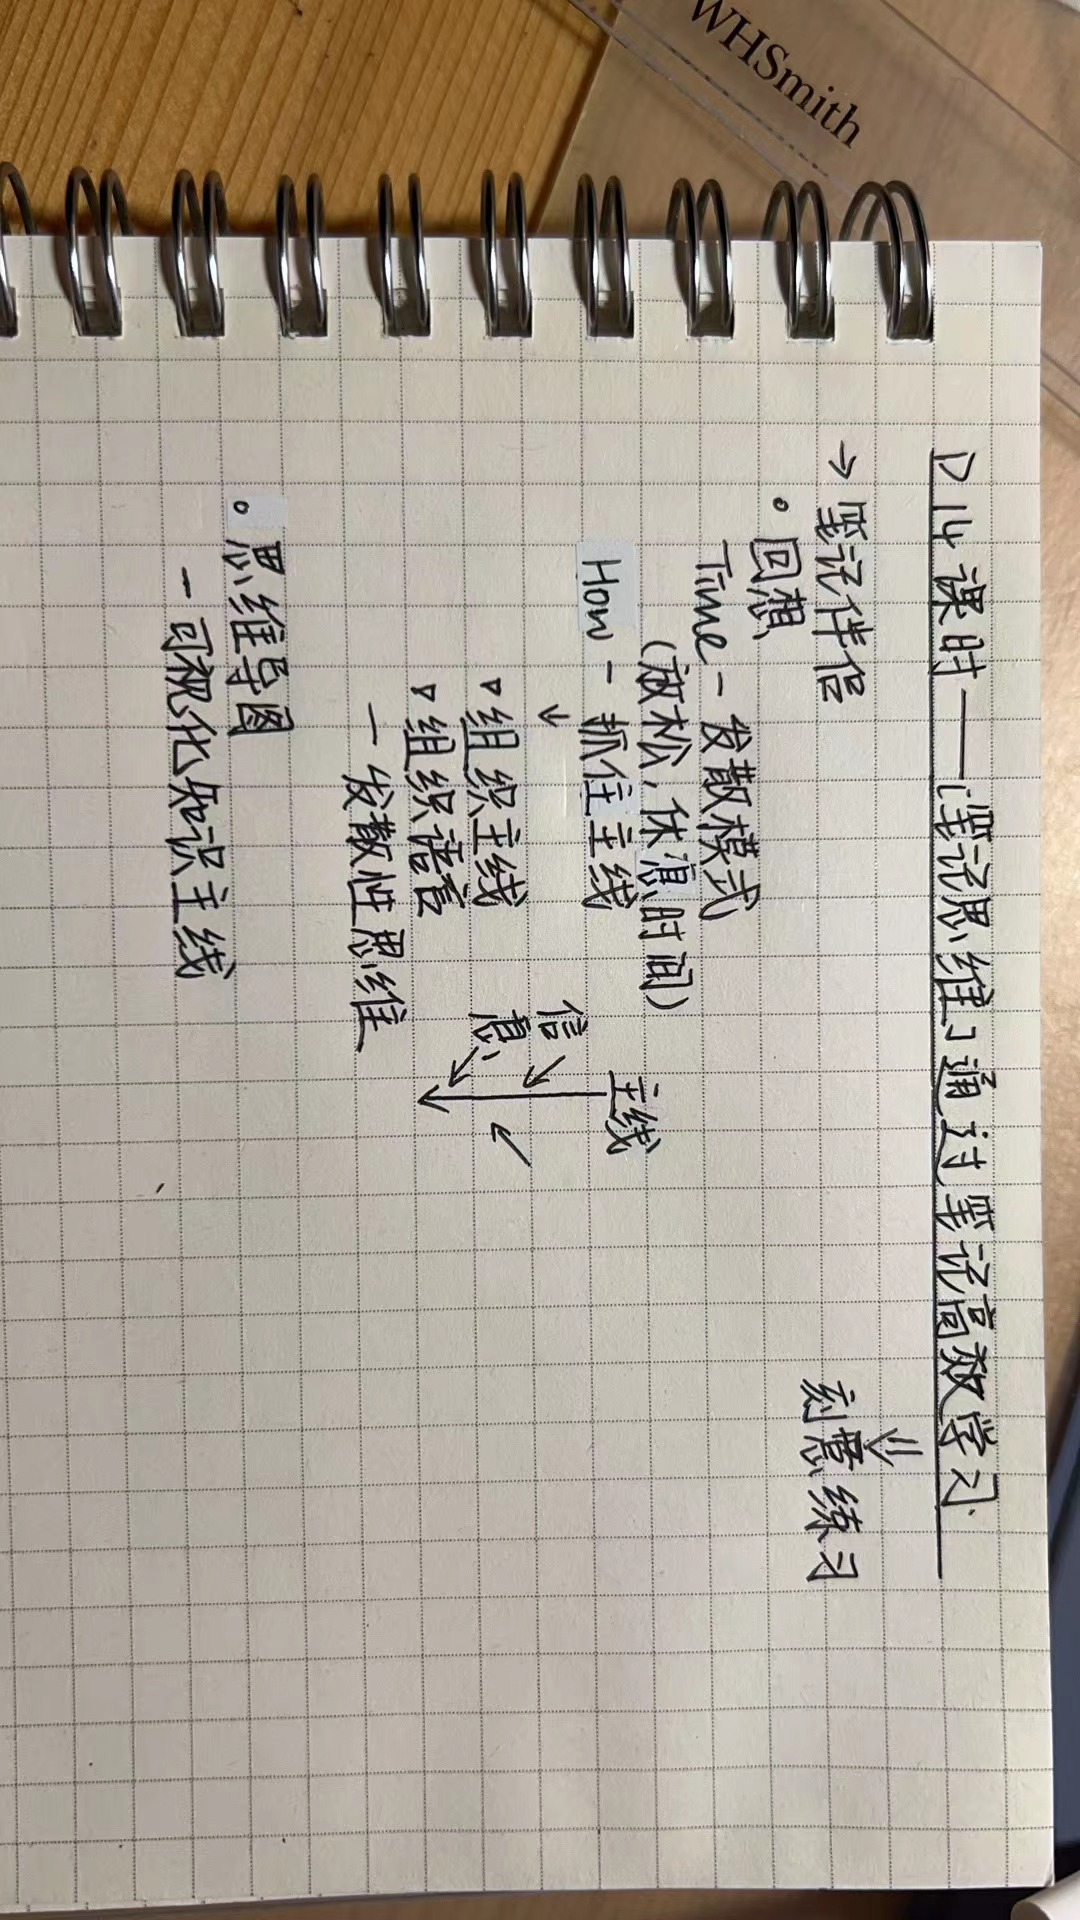 WHSmith
▷ 14课时——「笔记思维」通过笔记高效学习
⇓
刻意练习
→ 笔记伴侣
• 回想
Time - 发散模式
(放松,休息时间)
How - 抓住主线
↓
▿组织主线
▿组织语言
- 发散性思维
主线
信
息
• 思维导图
- 可视化知识主线